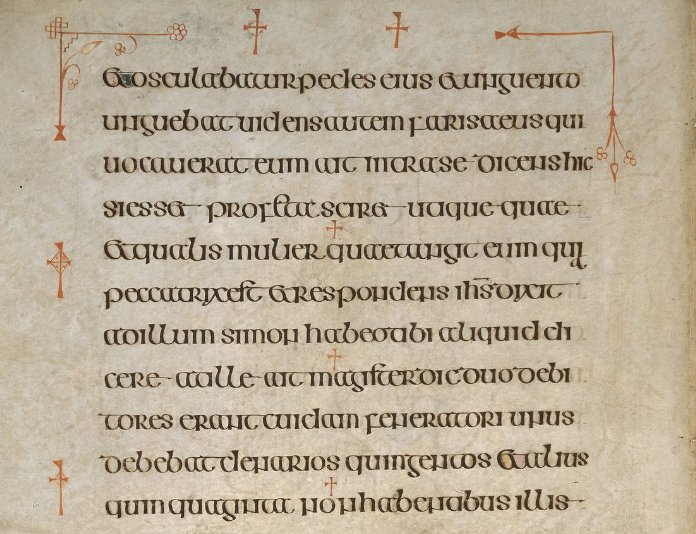 & osculabatur pedes eius & unguento
unguebat uidens autem farisaeus qui
uocauerat eum ait intra se dicens hic
si ess& profeta scir& utique quae
& qualis mulier quae tangit eum qui
peccatrix est & respondens ihs̄ dixit
ad illum simon habeo tibi aliquid di
cere at ille ait magister dic duo debi
tores erant cuidam feneratori unus
debebat denarios quingentos & alius
quinquaginta non habentibus illis